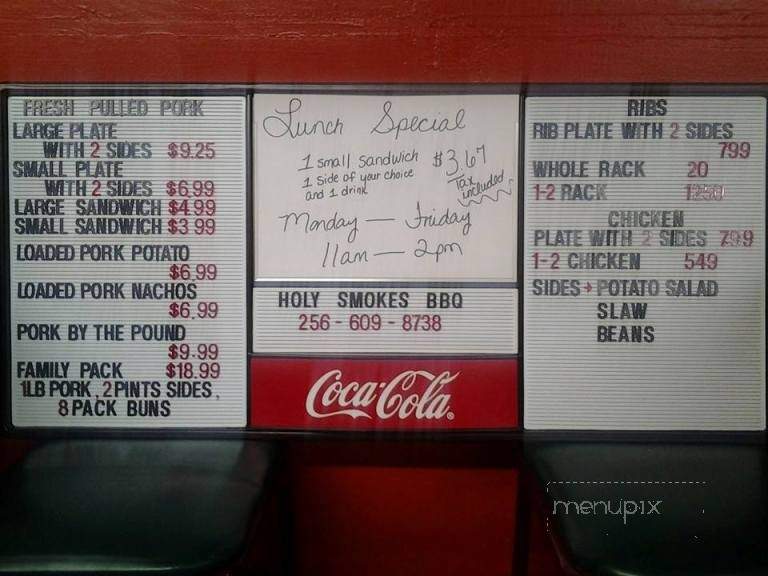 FRESH PULLED PORK
LARGE PLATE
WITH 2 SIDES $9.25
SMALL PLATE
WITH 2 SIDES $6.99
LARGE SANDWICH $4.99
SMALL SANDWICH $3 99
LOADED PORK POTATO
$6.99
LOADED PORK NACHOS
$6.99
PORK BY THE POUND
$9.99
FAMILY PACK $18.99
1LB PORK, 2 PINTS SIDES,
8 PACK BUNS
Lunch Special
1 small sandwich
1 side of your choice
and 1 drink
$3.67
Tax
included
Monday — Friday
11am — 2pm
HOLY SMOKES BBQ
256 - 609 - 8738
Coca-Cola
RIBS
RIB PLATE WITH 2 SIDES
799
WHOLE RACK 20
1-2 RACK
CHICKEN
PLATE WITH 2 SIDES 799
1-2 CHICKEN 549
SIDES + POTATO SALAD
SLAW
BEANS
menupix